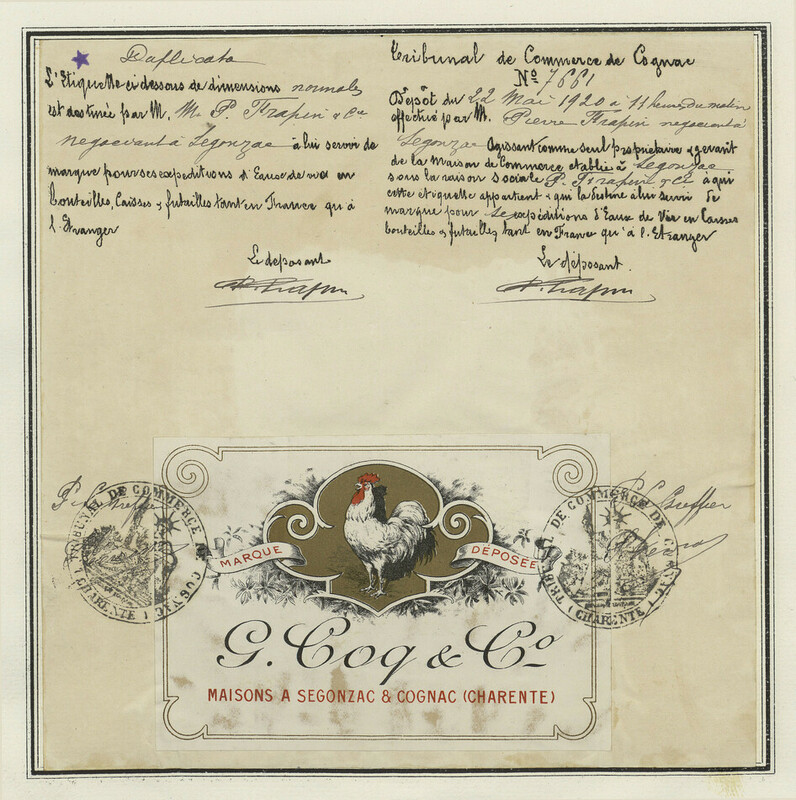 Duplicata
L'Etiquette ci dessous de dimensions normales
est destinée par M. M. P. Frapin & Cie
negociant à Segonzac à lui servir de
marque pour ses expeditions d'Eaux de vie en
bouteilles, Caisses & futailles tant en France qu'à
l'Etranger
Le deposant
P. Frapin
Tribunal de Commerce de Cognac
No 7661
Dépôt du 22 Mai 1920 à 11 heures du matin
effectué par M. Pierre Frapin negociant à
Segonzac Agissant comme seul propriétaire & gerant
de la Maison de Commerce etablie à Segonzac
sous la raison sociale P. Frapin & Cie à qui
cette etiquette appartient & qui la destine à lui servir de
marque pour ses expéditions d'Eaux de Vie en Caisses
bouteilles & futailles tant en France qu'à l'Etranger
Le déposant.
P. Frapin
P. Le Greffier
TRIBUNAL DE COMMERCE DE COGNAC (CHARENTE)
MARQUE DÉPOSÉE
P. Le Greffier
TRIBUNAL DE COMMERCE DE (CHARENTE)
G. Coq & Co
MAISONS A SEGONZAC & COGNAC (CHARENTE)